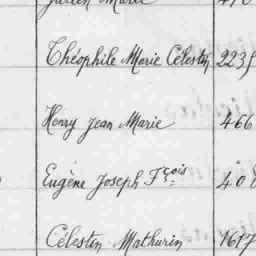 Julien Marie
Théophile Marie Célestin 2235
Henry Jean Marie 466
Eugène Joseph Fçois 408
Célestin Mathurin 1617